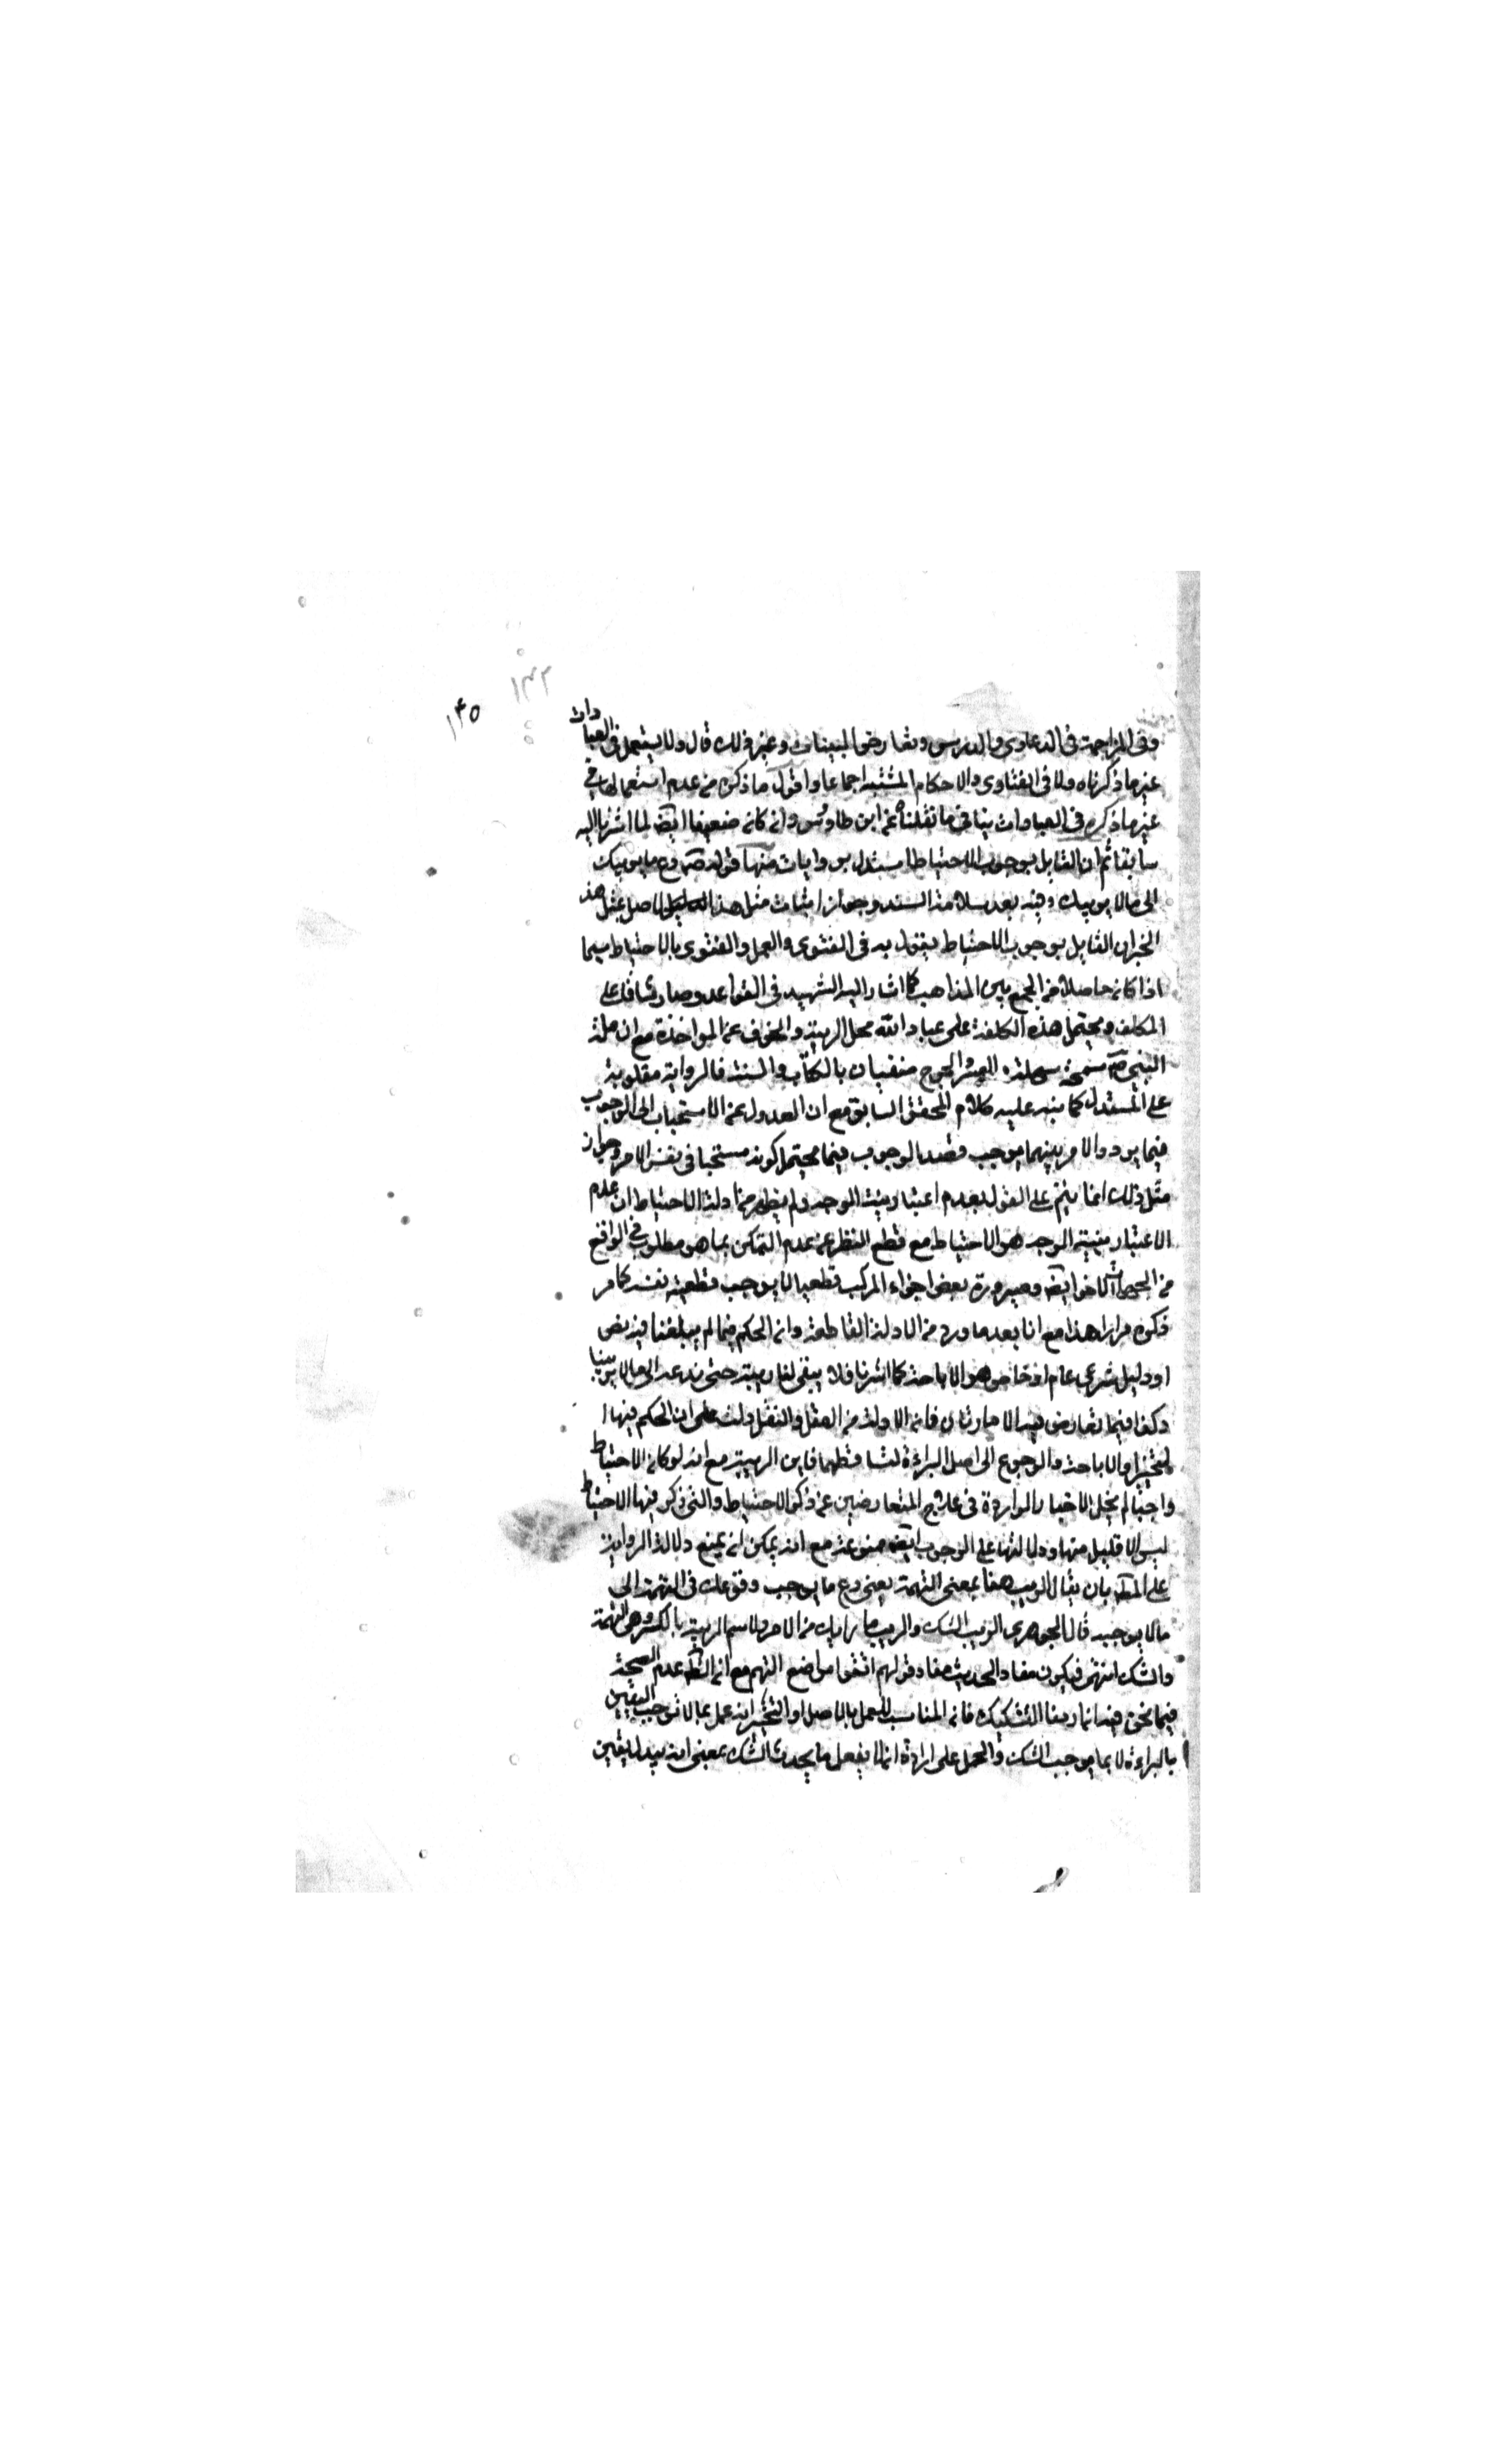 ١٣٢
١٤٥
وفى المزاحمة فى الدعاوى والدروس وتعارض البينات وغير ذلك قال ولا يستعمل فى العبادات
غير ما ذكرناه ولا فى الفتاوى والاحكام المشتبه اجماعا واقول ما ذكره من عدم استعمالها فى
غير ما ذكره فى العبادات ينافى ما نقلناه عن ابن طاوس وان كان ضعيفا ايضا لما اشرنا اليه
سابقا ثم ان القايل بوجوب الاحتياط استدل بروايات منها قوله ص دع ما يريبك
الى ما لا يريبك وفيه بعد سلامة السند وجواز اثبات مثل هذا الاصل بمثل هذ
الخبر ان القايل بوجوب الاحتياط يقول به فى الفتوى والعمل والفتوى بالاحتياط سيما
اذا كان حاصلا من الجمع بين المذاهب كما اشار اليه الشهيد فى القواعد وصار شاقا على
المكلف وتحتمل هذه الكلفة على عباد الله محل الريبة والخوف عن المواخذة مع ان ملة
النبى ص سمحة سهلة والعسر والحرج منفيان بالكتاب والسنة فالرواية مقلوبة
على المستدل كما ينبه عليه كلام المحقق السابق مع ان العدول عن الاستحباب الى الوجوب
فيما يردد الامر بينهما يوجب قصد الوجوب فيما يحتمل كونه مستحبا فى نفس الامر وجواز
مثل ذلك انما يتم على القول بعدم اعتبار نية الوجه ولم يظهر من ادلة الاحتياط ان عدم
الاعتبار بنية الوجه هو الاحتياط مع قطع النظر عن عدم التمكن بما هو مطلوب فى الواقع
من الجهات الاخر ايضا وصيرورة بعض اجزاء المركب قطعيا لا يوجب قطعية نفسه كما مر
ذكره مرارا هذا مع انا بعد ما ورد من الادلة القاطعة وان الحكم فيما لم يبلغنا فيه نص
او دليل شرعى عام او خاص هو الاباحة كما اشرنا فلا يبقى لنا ريبة حتى ندعه الى ما لا يريبنا
وكذا فيما تعارض فيه الامارتان فان الادلة من العقل والنقل دلت على ان الحكم فيها ا
لتخيير او الاباحة والرجوع الى اصل البراءة لتساقطهما فاين الريبة مع انه لو كان الاحتياط
واجبا لم يخل الاخبار الواردة فى علاج المتعارضين عن ذكر الاحتياط والتى ذكر فيها الاحتياط
ليس الا قليل منها ودلالتها على الوجوب ايضا ممنوعة مع انه يمكن ان يمنع دلالة الرواية
على المط بان يقال الريب هنا بمعنى التهمة يعنى دع ما يوجب وقوعك فى التهمة الى
ما لا يوجبه قال الجوهرى الريب الشك والريب ما رابك من الامر والاسم الريبة بالكسر وهى التهمة
والشك انتهى فيكون مفاد الحديث مفاد قولهم اتقوا مواضع التهم مع ان الظ عدم الصحة
فيما نحن فيه انما ريبنا التشكيك فان المناسب للعمل بالاصل او التخيير انه عمل بما لا توجب اليقين
بالبراءة لا بما يوجب الشك والحمل على ارادة ان لا يفعل ما يحدث الشك بمعنى انه يبدل يقين